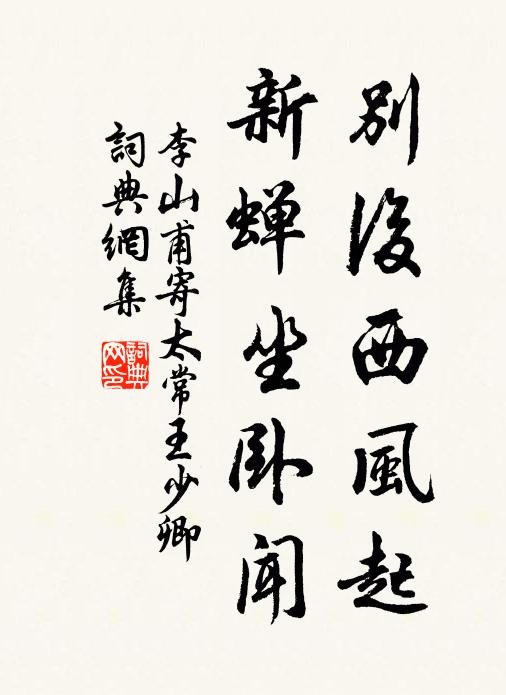 别後西風起
新蟬坐卧聞
李山甫寄太常王少卿
詞典網集
詞典
网印